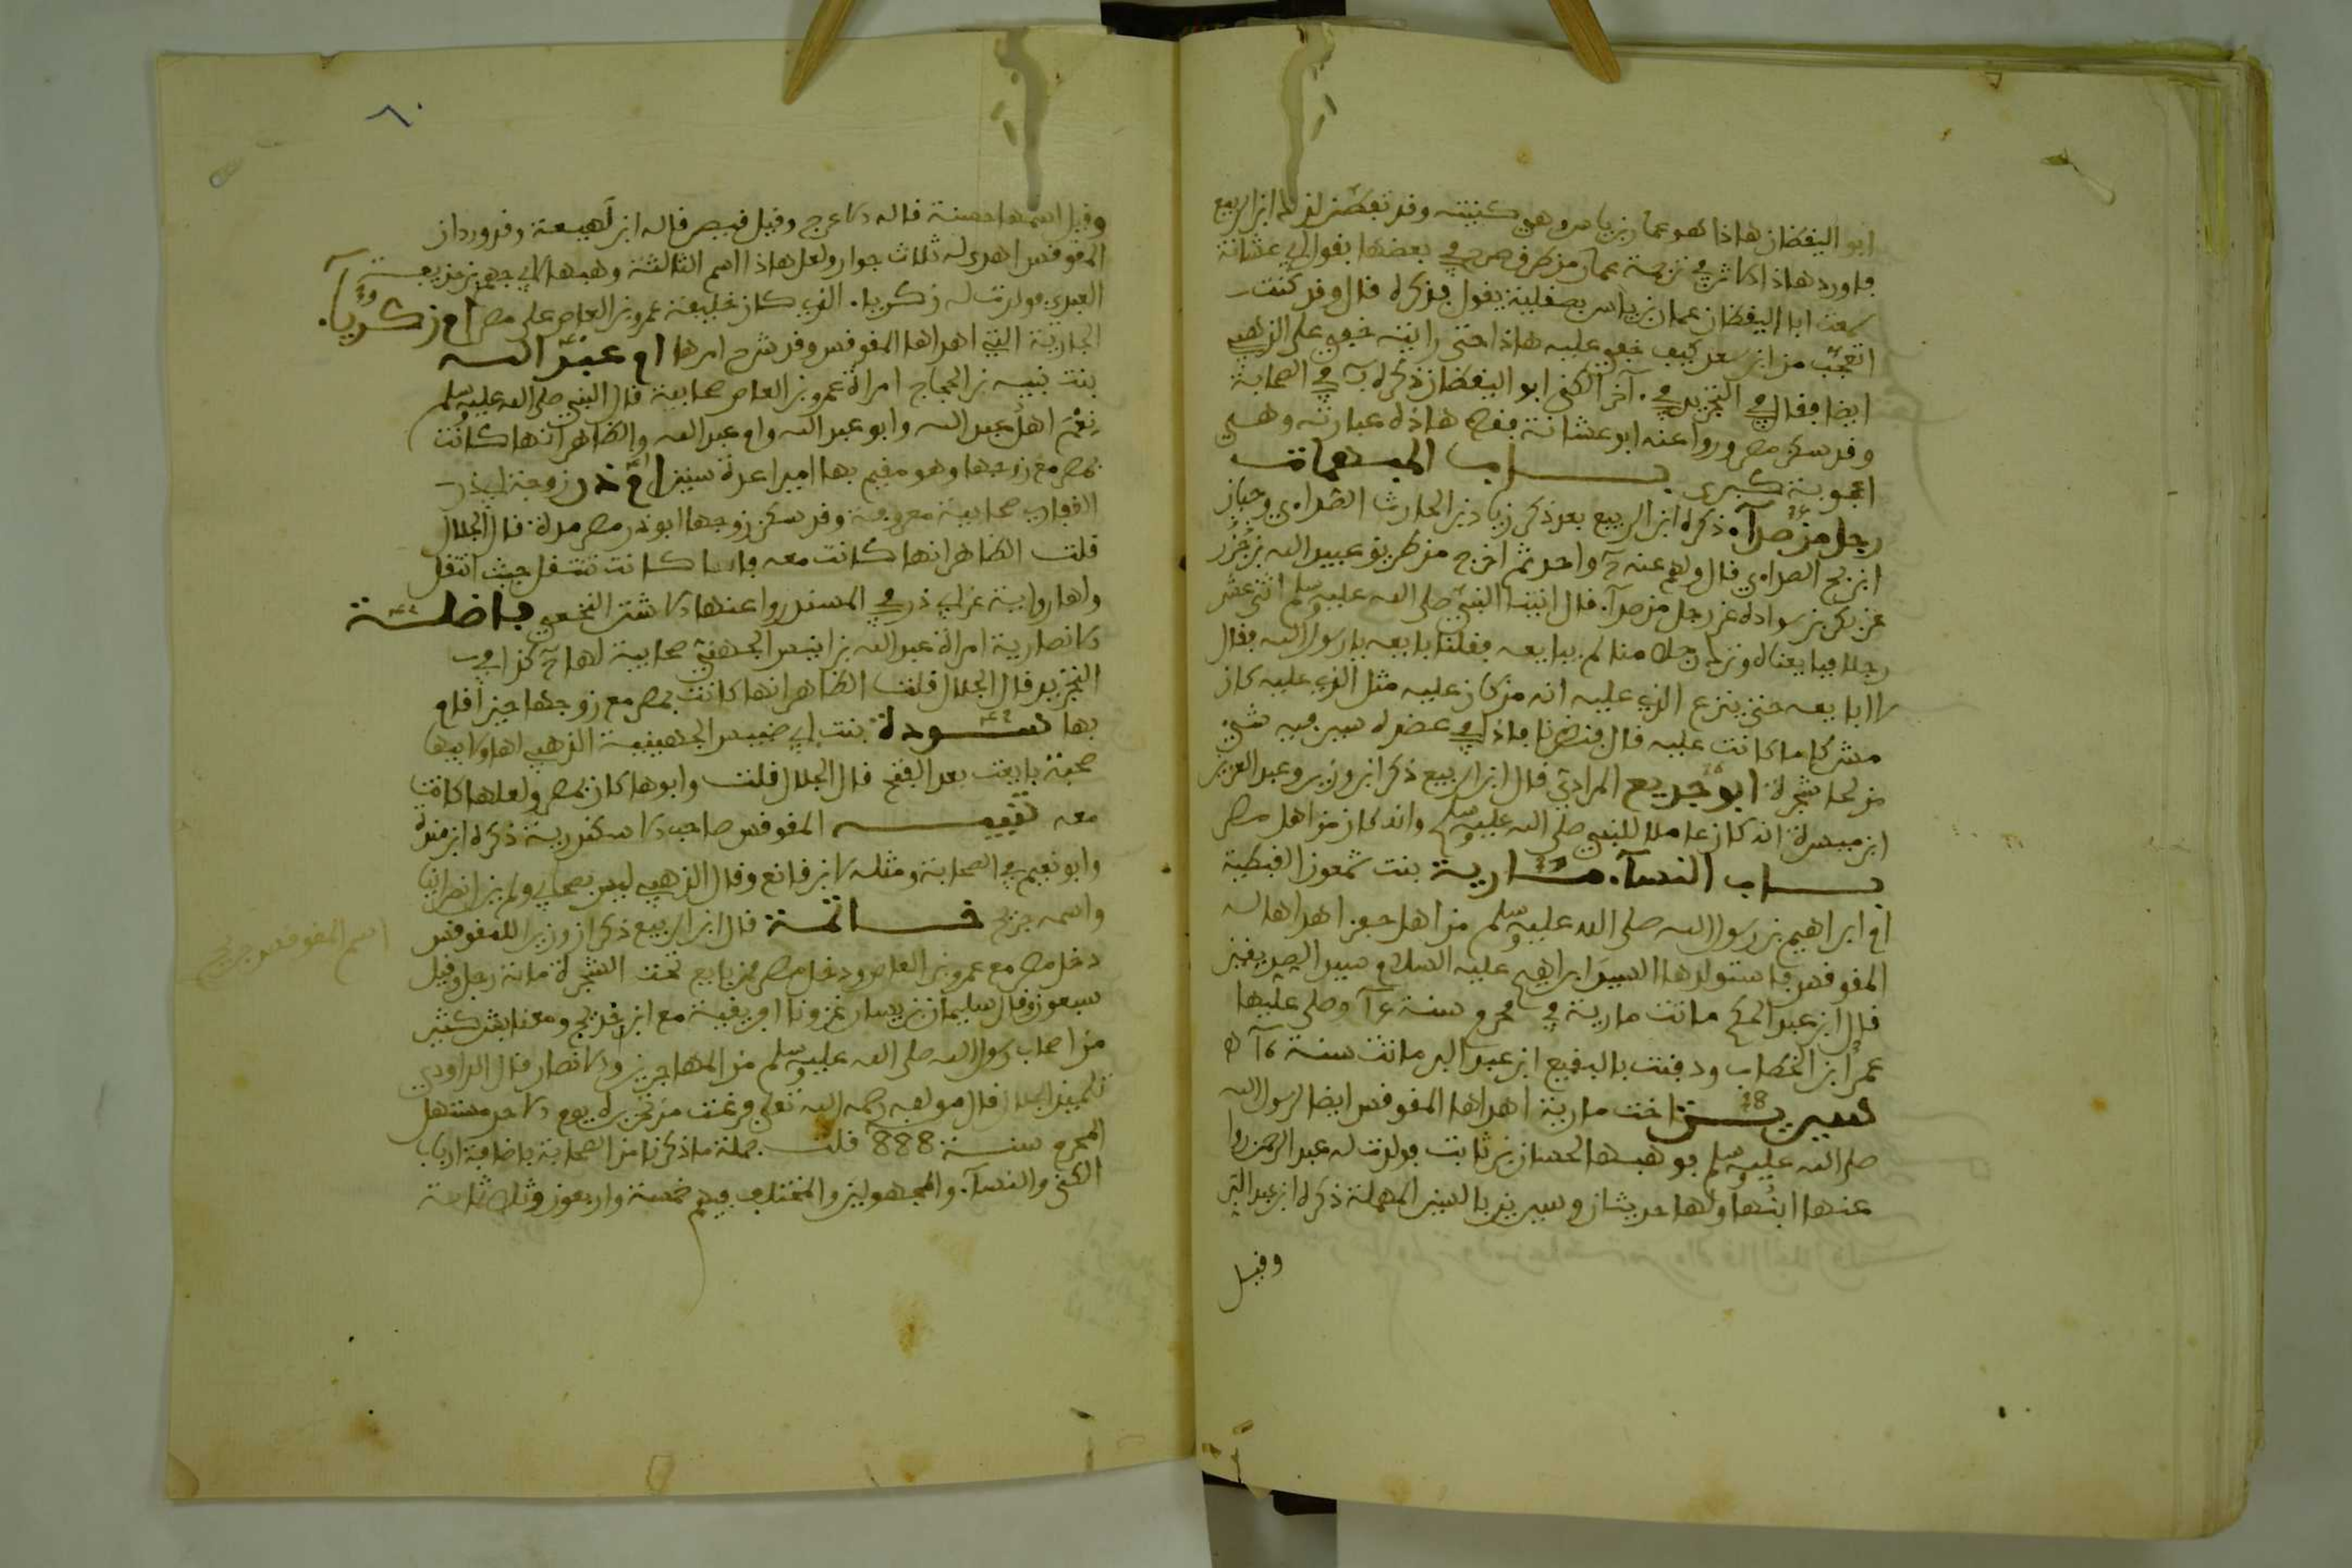 ابو اليقظان هاذا هو عمار بن ياسر وهي كنيته وقد تفطن لذلك ابن الربيع
فاورد هاذا الاثر في ترجمة عمار من طرق صرح في بعضها بقول ابي عشانة
سمعت ابا اليقظان عمار بن ياسر بصفلينة يقول فذكره قال وقد كنت
اتعجب من ابن سعد كيف خفي عليه هاذا حتى رايته خفي على الذهبي
ايضا فقال في التجريد في آخر الكنى ابو اليقظان ذكره في الصحابة
وقد سكن مصر وروا عنه ابو عشانة فقط هاذه عبارته وهي
اعجوبة كبرى باب المبهمات
رجل من صدآء ذكره ابن الربيع بعد ذكر زياد بن الحارث الصدآءي وحبان
ابن بح الصدآءي قال ولهم عنه واحد ثم اخرج من طريق عبيد الله بن زحر
عن بكر بن سوادة عن رجل من صدآء قال اتينا النبي صلى الله عليه وسلم اثني عشر
رجلا فبايعناه وترك رجلا منا لم يبايعه فقلنا بايعه يا رسول الله فقال
لا ابايعه حتى ينزع الذي عليه انه من كان عليه مثل الذي عليه كان
مشركا ما كانت عليه قال فنضرنا فاذا في عضده سير فيه شيء
من لحا شجرة ابو جريع المرادي قال ابن الربيع ذكر ابن وزير وعبد العزيز
ابن ميسرة انه كان عاملا للنبي صلى الله عليه وسلم وانه كان من اهل مصر
باب النسآء مارية بنت شمعون القبطية
ام ابراهيم بن رسول الله صلى الله عليه وسلم من اهل حفن اهداها له
المقوقس فاستولدها السيد ابراهيم عليه السلام سيد الصديقين
قال ابن عبد الحكم ماتت مارية في محرم سنة وصلى عليها
عمر ابن الخطاب ودفنت بالبقيع ابن عبد البر ماتت سنة
سيرين اخت مارية اهداها المقوقس ايضا لرسول الله
صلى الله عليه وسلم فوهبها لحسان بن ثابت فولدت له عبد الرحمن روا
عنها ابنها ولها حديثان وسيرين بالسين المهملة ذكره ابن عبد البر
وقيل
٦٠
وقيل اسمها حسنة قاله الاعرج وقيل قيصر قاله ابن لهيعة وقد ورد ان
المقوقس اهدى له ثلاث جوار ولعل هاذا اسم الثالثة وهبها لابي جهم بن حذيفة
العبدي فولدت له زكريا الذي كان خليفة عمرو بن العاص على مصر ام زكريآء
الجارية التي اهداها المقوقس وقد شرح امرها ام عبد الله
بنت نبيه بن الحجاج امراة عمرو بن العاص صحابية قال النبي صلى الله عليه وسلم
نعم اهل عبد الله وابو عبد الله وام عبد الله والظاهر انها كانت
بمصر مع زوجها وهو مقيم بها اميرا عدة سنين ام ذر زوجة ابي ذر
الغفاري صحابية معروفة وقد سكن زوجها ابو ذر مصر مدة قال الجلال
قلت الظاهر انها كانت معه فانها كانت تنتقل حيث انتقل
ولها رواية عن ابي ذر في المسند روا عنها الاشتر النخعي فاضلة
الانصارية امراة عبد الله بن انيس الجهني صحابية لها كذا في
التجريد قال الجلال قلت الظاهر انها كانت بمصر مع زوجها حين اقام
بها سودة بنت ابي ضبيس الجهينية الذهبي لها ولابيها
صحبة بايعت بعد الفتح قال الجلال قلت وابوها كان بمصر ولعلها كانت
معه تتميمة المقوقس صاحب الاسكندرية ذكره ابن مندة
وابو نعيم في الصحابة ومثله لابن قانع وقال الذهبي ليس بصحابي ولم يزل نصرانيا
واسمه جريج خاتمة قال ابن الربيع ذكر ان وزيرا للمقوقس
دخل مصر مع عمرو بن العاص ودخل مصر ممن بايع تحت الشجرة مائة رجل وقيل
سبعون وقال سليمان بن يسار غزونا افريقية مع ابن حديج ومعنا بشر كثير
من اصحاب رسول الله صلى الله عليه وسلم من المهاجرين والانصار قال الداودي
تلميذ الجلال قال مولفه رحمه الله تعلى فرغت من تحريره يوم الاحد مستهل
المحرم سنة 888 قلت جملة ما ذكرنا من الصحابة باضافة ارباب
الكنى والنسآء والمجهولين والمختلف فيهم خمسة واربعون وثلاثمائة
اسم المقوقس جريج